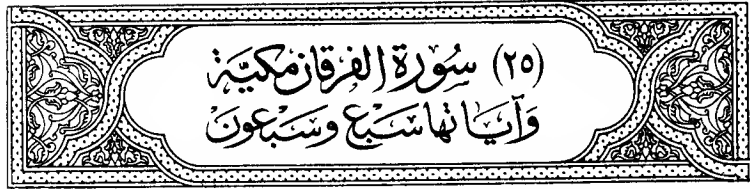 (٢٥) سُوْرَةُ الفُرقَان مَكيَّة
وَآيَاتهَا سَبْع وَسَبْعونَ